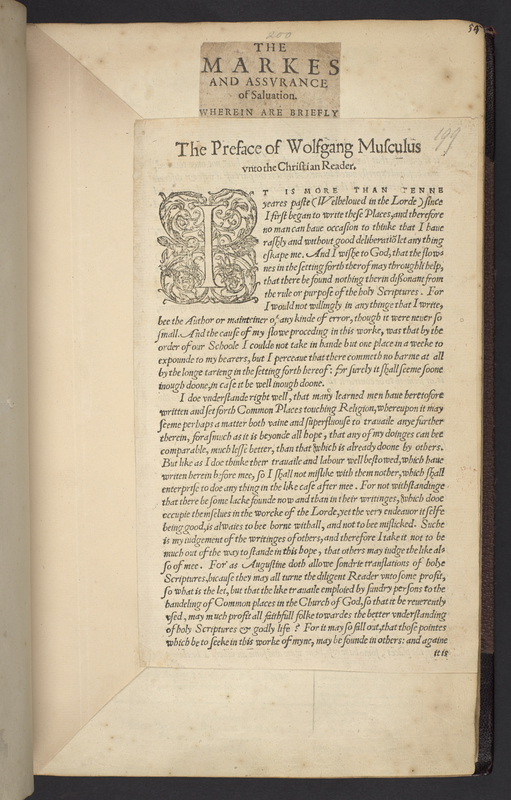 54
200
THE
MARKES
AND ASSVRANCE
of Saluation.
WHEREIN ARE BRIEFLY
199
The Preface of Wolfgang Musculus
vnto the Christian Reader.
IT IS MORE THAN TENNE
yeares paste (Welbeloued in the Lorde) since
I first began to write these Places, and therefore
no man can haue occasion to thinke that I haue
rashly and without good deliberatiō let any thing
escape me. And I wishe to God, that the slow-
nes in the setting forth therof may throughli help,
that there be found nothing therin dissonant from
the rule or purpose of the holy Scriptures. For
I would not willingly in any thinge that I write,
bee the Author or mainteiner of any kinde of error, though it were neuer so
small. And the cause of my slowe proceding in this worke, was that by the
order of our Schoole I coulde not take in hande but one place in a weeke to
expounde to my hearers, but I perceaue that there commeth no harme at all
by the longe tarieng in the setting forth hereof: for surely it shall seeme soone
inough doone, in case it be well inough doone.
I doe vnderstande right well, that many learned men haue heretofore
written and set forth Common Places touching Religion, whereupon it may
seeme perhaps a matter both vaine and superfluouse to trauaile anye further
therein, forasmuch as it is beyonde all hope, that any of my doinges can bee
comparable, much lesse better, than that which is already doone by others.
But like as I doe thinke their trauaile and labour well bestowed, which haue
writen herein before mee, so I shall not mislike with them nother, which shall
enterprise to doe any thing in the like case after mee. For not withstandinge
that there be some lacke founde now and than in their writinges, which dooe
occupie themselues in the worcke of the Lorde, yet the very endeauor it selfe
being good, is alwaies to bee borne withall, and not to bee mislicked. Suche
is my iudgement of the writinges of others, and therefore I take it not to be
much out of the way to stande in this hope, that others may iudge the like al-
so of mee. For as Augustine doth allowe sondrie translations of holye
Scriptures, bicause they may all turne the diligent Reader vnto some profit,
so what is the let, but that the like trauaile emploied by sundry persons to the
handeling of Common places in the Church of God, so that it be reuerently
vsed, may much profit all faithfull folke towardes the better vnderstanding
of holy Scriptures & godly life? For it may so fall out, that those pointes
which be to seeke in this worke of myne, may be founde in others: and againe
it is